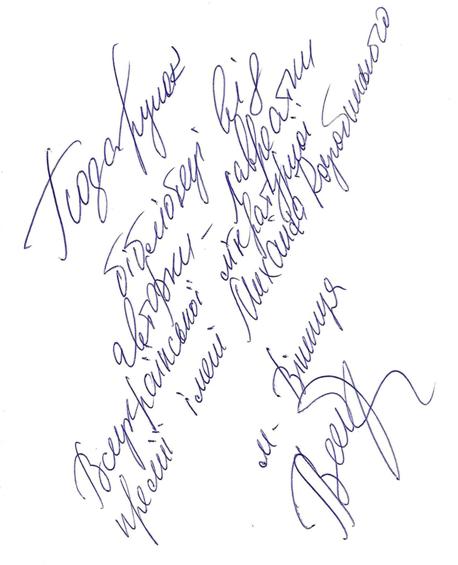 Подарунок
бібліотеці від
авторки - лавреатки
Всеукраїнської літературної
премії імені Михайла Коцюбинського
м. Вінниця